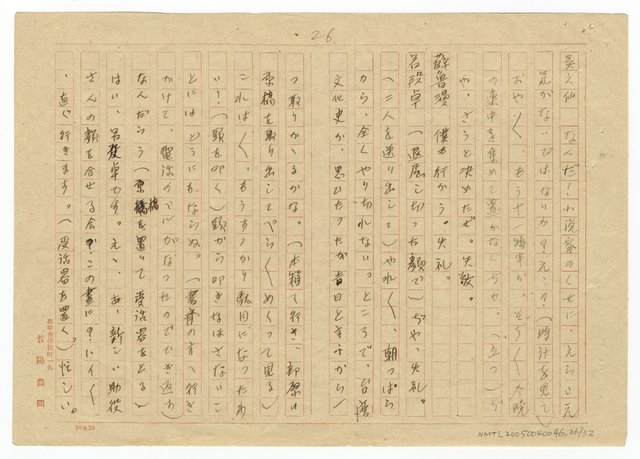 26.
呉久仙 なんだ!小説家のくせに、えらさえ
気がないではないか?え、?(時計を見て)
おや〱、もう十一時半か。そろ〱今晩
の連中を集めて置かなくちや(立つ)ぢ
や、さうと決めたぜ。失敬。
蘇魯漫 僕も行かう。失礼。
呂漢卓 (退屈し切つた顔で)ぢや、失礼。
(二人を送り出して)やれ〱、朝つぱら
から、全くやり切れない。ところで、台湾
文化史か、思ひたつたが吉日と
つ取りかゝるかな。(本箱へ行き、部厚い
原稿を取り出してペら〱めくつて見る)
これは〱、もうすつかり駄目になつたわ
い!(頭を叩く)頭から叩きなほさないこ
とにはどうにもならぬ。(書斎の方へ行き
かけて、電話のベルがなつたのでひき返す)
なんだらう(原稿を置いて受話器をとる)
はい、呂漢卓です。えゝ、あ、新しい助役
さんの顔を合せる会?この昼に?ハイ〱
、直ぐ行きます。(受話器を置く)忙しい。
嘉義市
首陽農園
10×20
NMTL20050040046,26/32